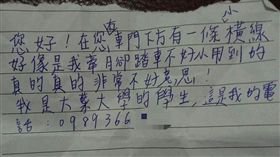 您好!在您的車門下方有一條小橫線
好像是我牽腳踏車不好小用到的
真的真的非常不好意思!
我是大葉大學的學生,這是我的電
話:0989366